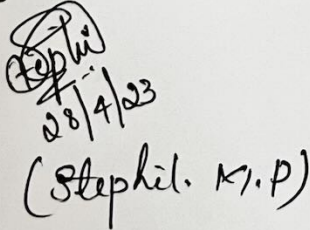 Stephi
28/4/23
(Stephil. K.P)